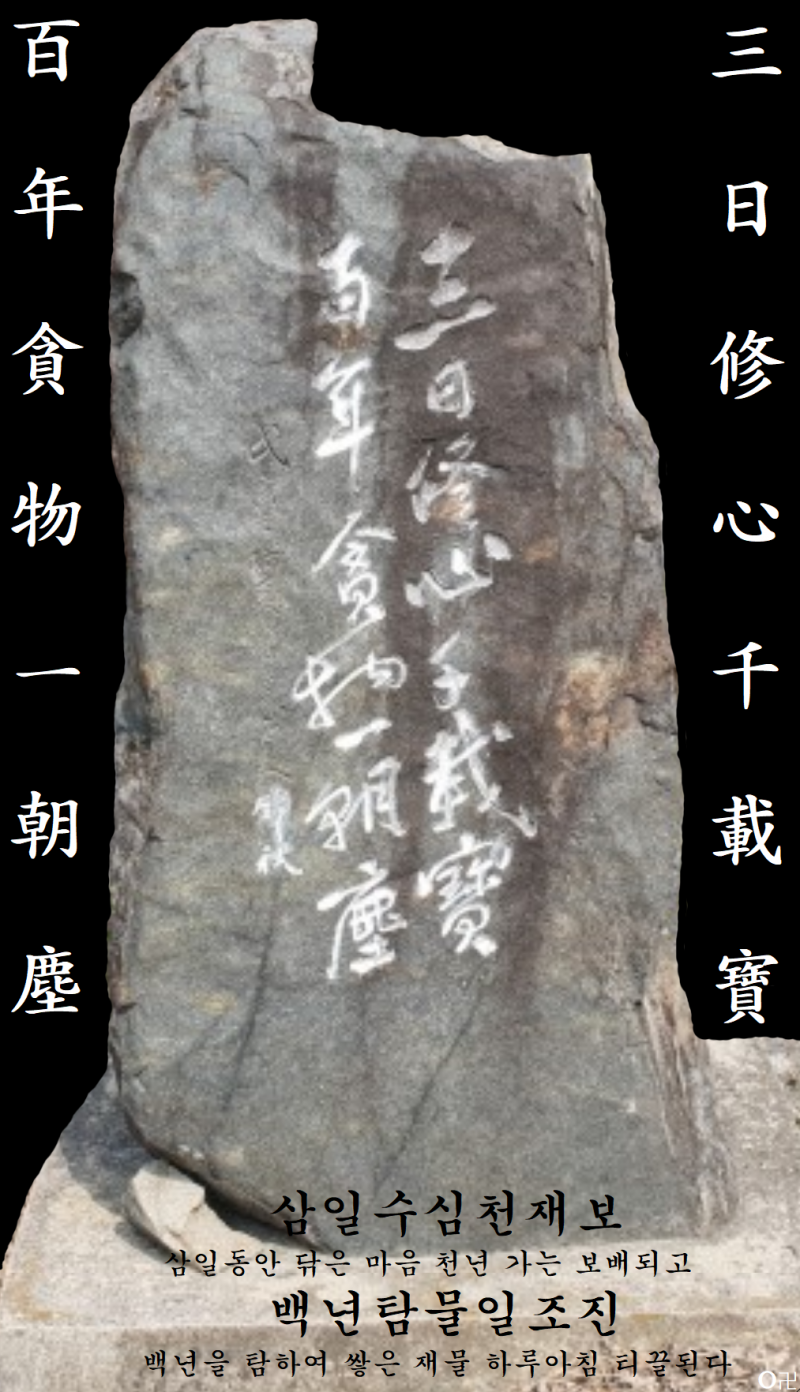 三日修心千載寶
百年貪物一朝塵
三日修心千載寶
百年貪物一朝塵
삼일수심천재보
삼일동안 닦은 마음 천년 가는 보배되고
백년탐물일조진
백년을 탐하여 쌓은 재물 하루아침 티끌된다
O卍